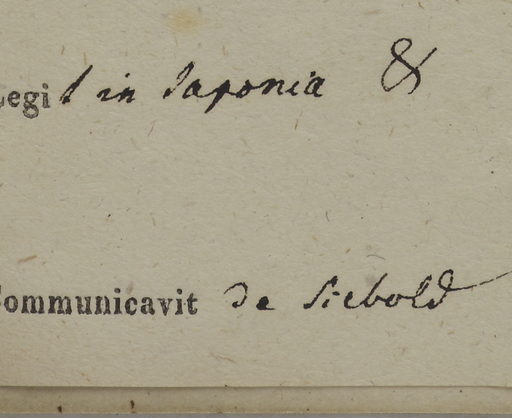 Legit in Japonia &
Communicavit de Siebold